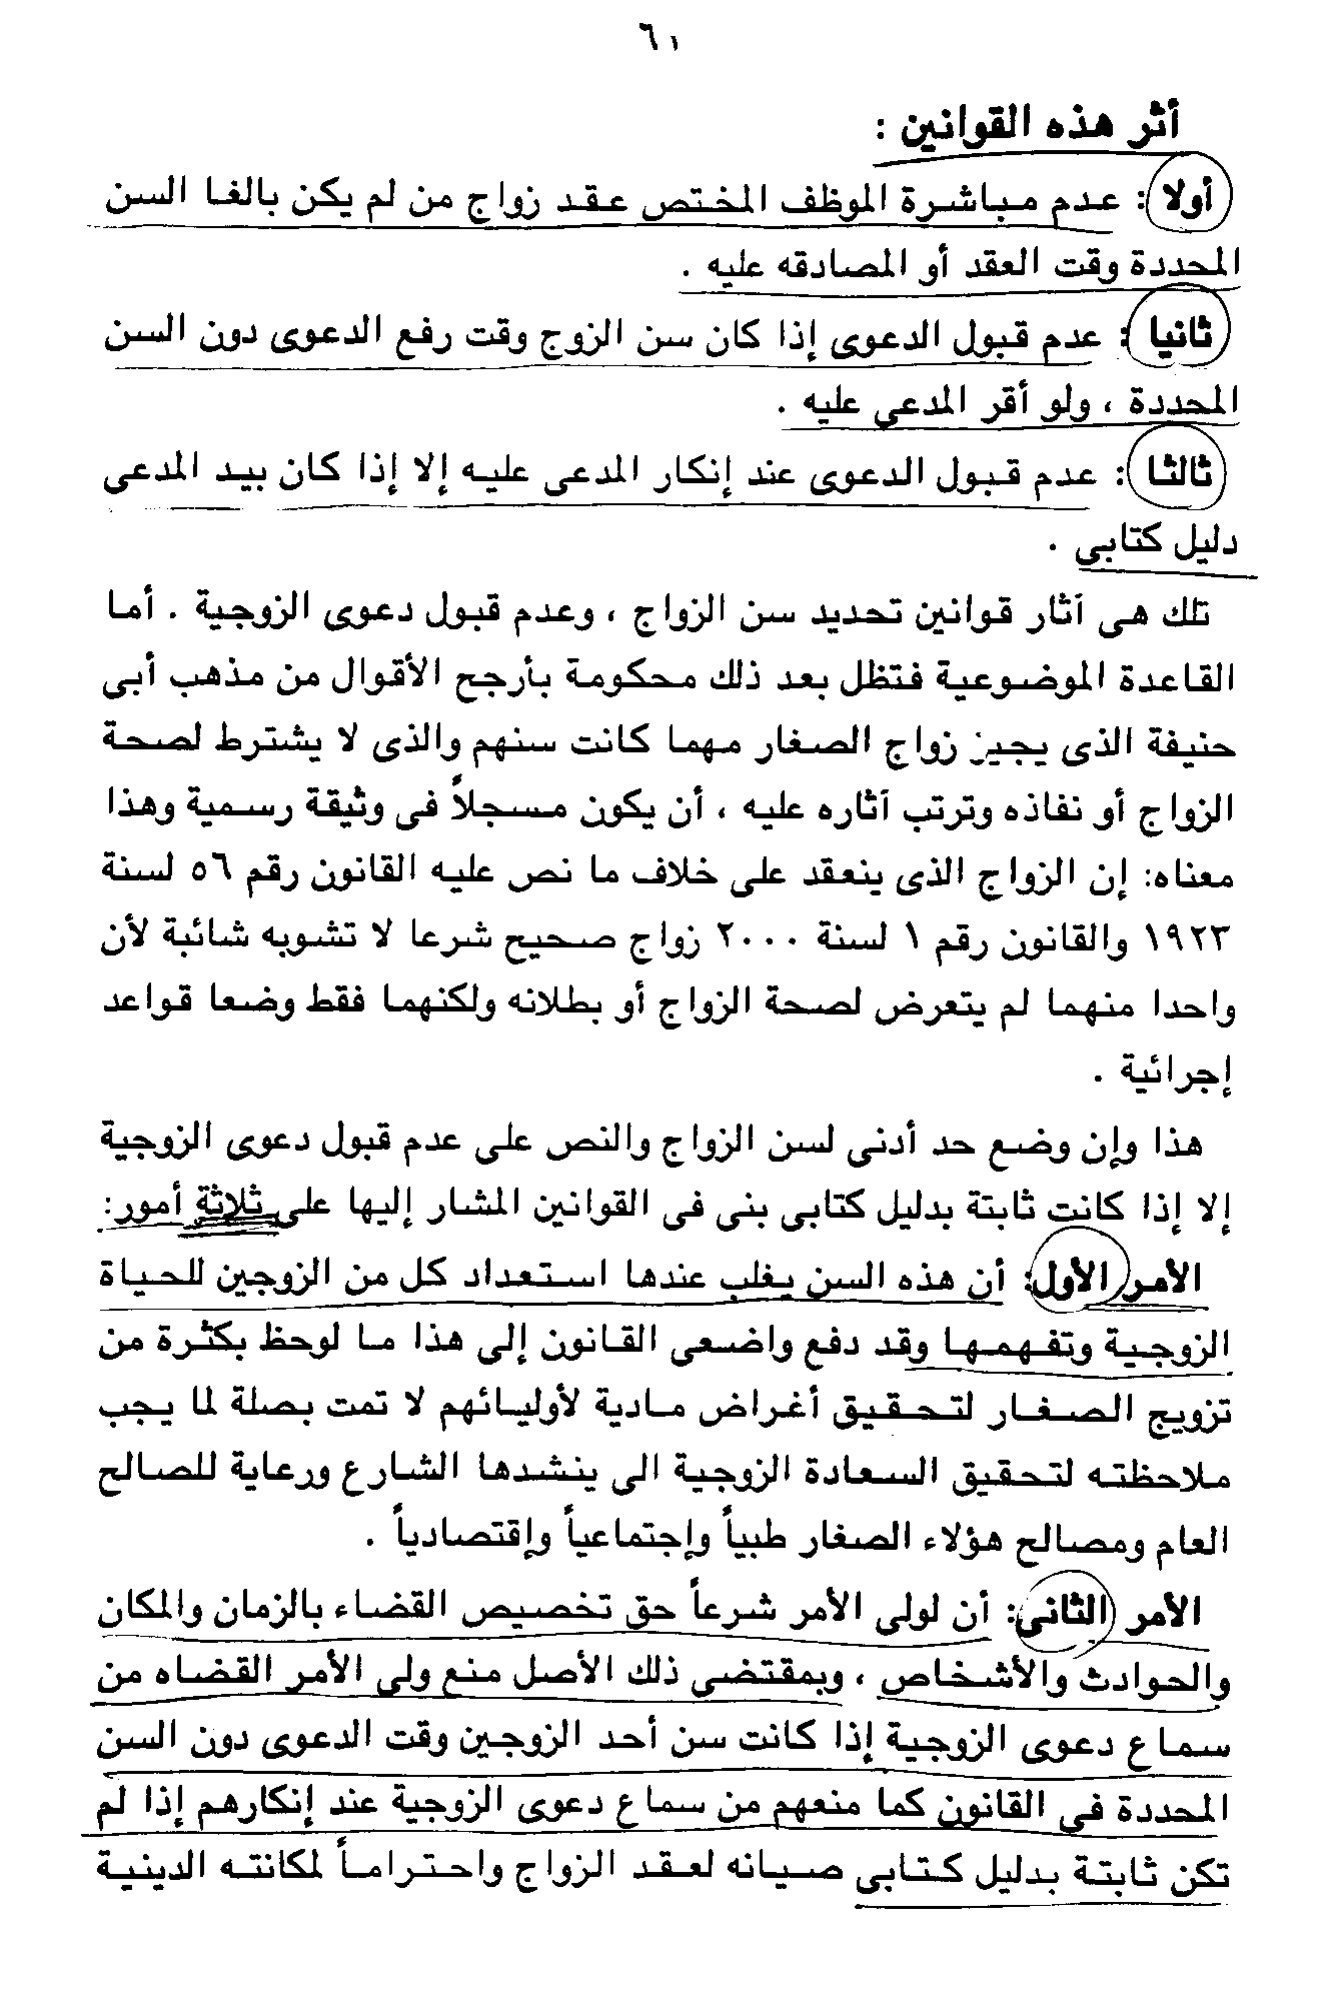 ٦١
أثر هذه القوانين :
أولا : عدم مباشرة الموظف المختص عقد زواج من لم يكن بالغا السن
المحددة وقت العقد أو المصادقه عليه .
ثانيا : عدم قبول الدعوى إذا كان سن الزوج وقت رفع الدعوى دون السن
المحددة ، ولو أقر المدعى عليه .
ثالثا : عدم قبول الدعوى عند إنكار المدعى عليه إلا إذا كان بيد المدعى
دليل كتابى .
تلك هى آثار قوانين تحديد سن الزواج ، وعدم قبول دعوى الزوجية . أما
القاعدة الموضوعية فتظل بعد ذلك محكومة بأرجح الأقوال من مذهب أبى
حنيفة الذى يجيز زواج الصغار مهما كانت سنهم والذى لا يشترط لصحة
الزواج أو نفاذه وترتب آثاره عليه ، أن يكون مسجلاً فى وثيقة رسمية وهذا
معناه: إن الزواج الذى ينعقد على خلاف ما نص عليه القانون رقم ٥٦ لسنة
١٩٢٣ والقانون رقم ١ لسنة ٢٠٠٠ زواج صحيح شرعا لا تشوبه شائبة لأن
واحدا منهما لم يتعرض لصحة الزواج أو بطلانه ولكنهما فقط وضعا قواعد
إجرائية .
هذا وإن وضع حد أدنى لسن الزواج والنص على عدم قبول دعوى الزوجية
إلا إذا كانت ثابتة بدليل كتابى بنى فى القوانين المشار إليها على ثلاثة أمور:
الأمر الأول: أن هذه السن يغلب عندها استعداد كل من الزوجين للحياة
الزوجية وتفهمها وقد دفع واضعى القانون إلى هذا ما لوحظ بكثرة من
تزويج الصغار لتحقيق أغراض مادية لأوليائهم لا تمت بصلة لما يجب
ملاحظته لتحقيق السعادة الزوجية الى ينشدها الشارع ورعاية للصالح
العام ومصالح هؤلاء الصغار طبياً وإجتماعياً وإقتصادياً .
الأمر الثانى: أن لولى الأمر شرعاً حق تخصيص القضاء بالزمان والمكان
والحوادث والأشخاص ، وبمقتضى ذلك الأصل منع ولى الأمر القضاه من
سماع دعوى الزوجية إذا كانت سن أحد الزوجين وقت الدعوى دون السن
المحددة فى القانون كما منعهم من سماع دعوى الزوجية عند إنكارهم إذا لم
تكن ثابتة بدليل كتابى صيانه لعقد الزواج واحتراماً لمكانته الدينية